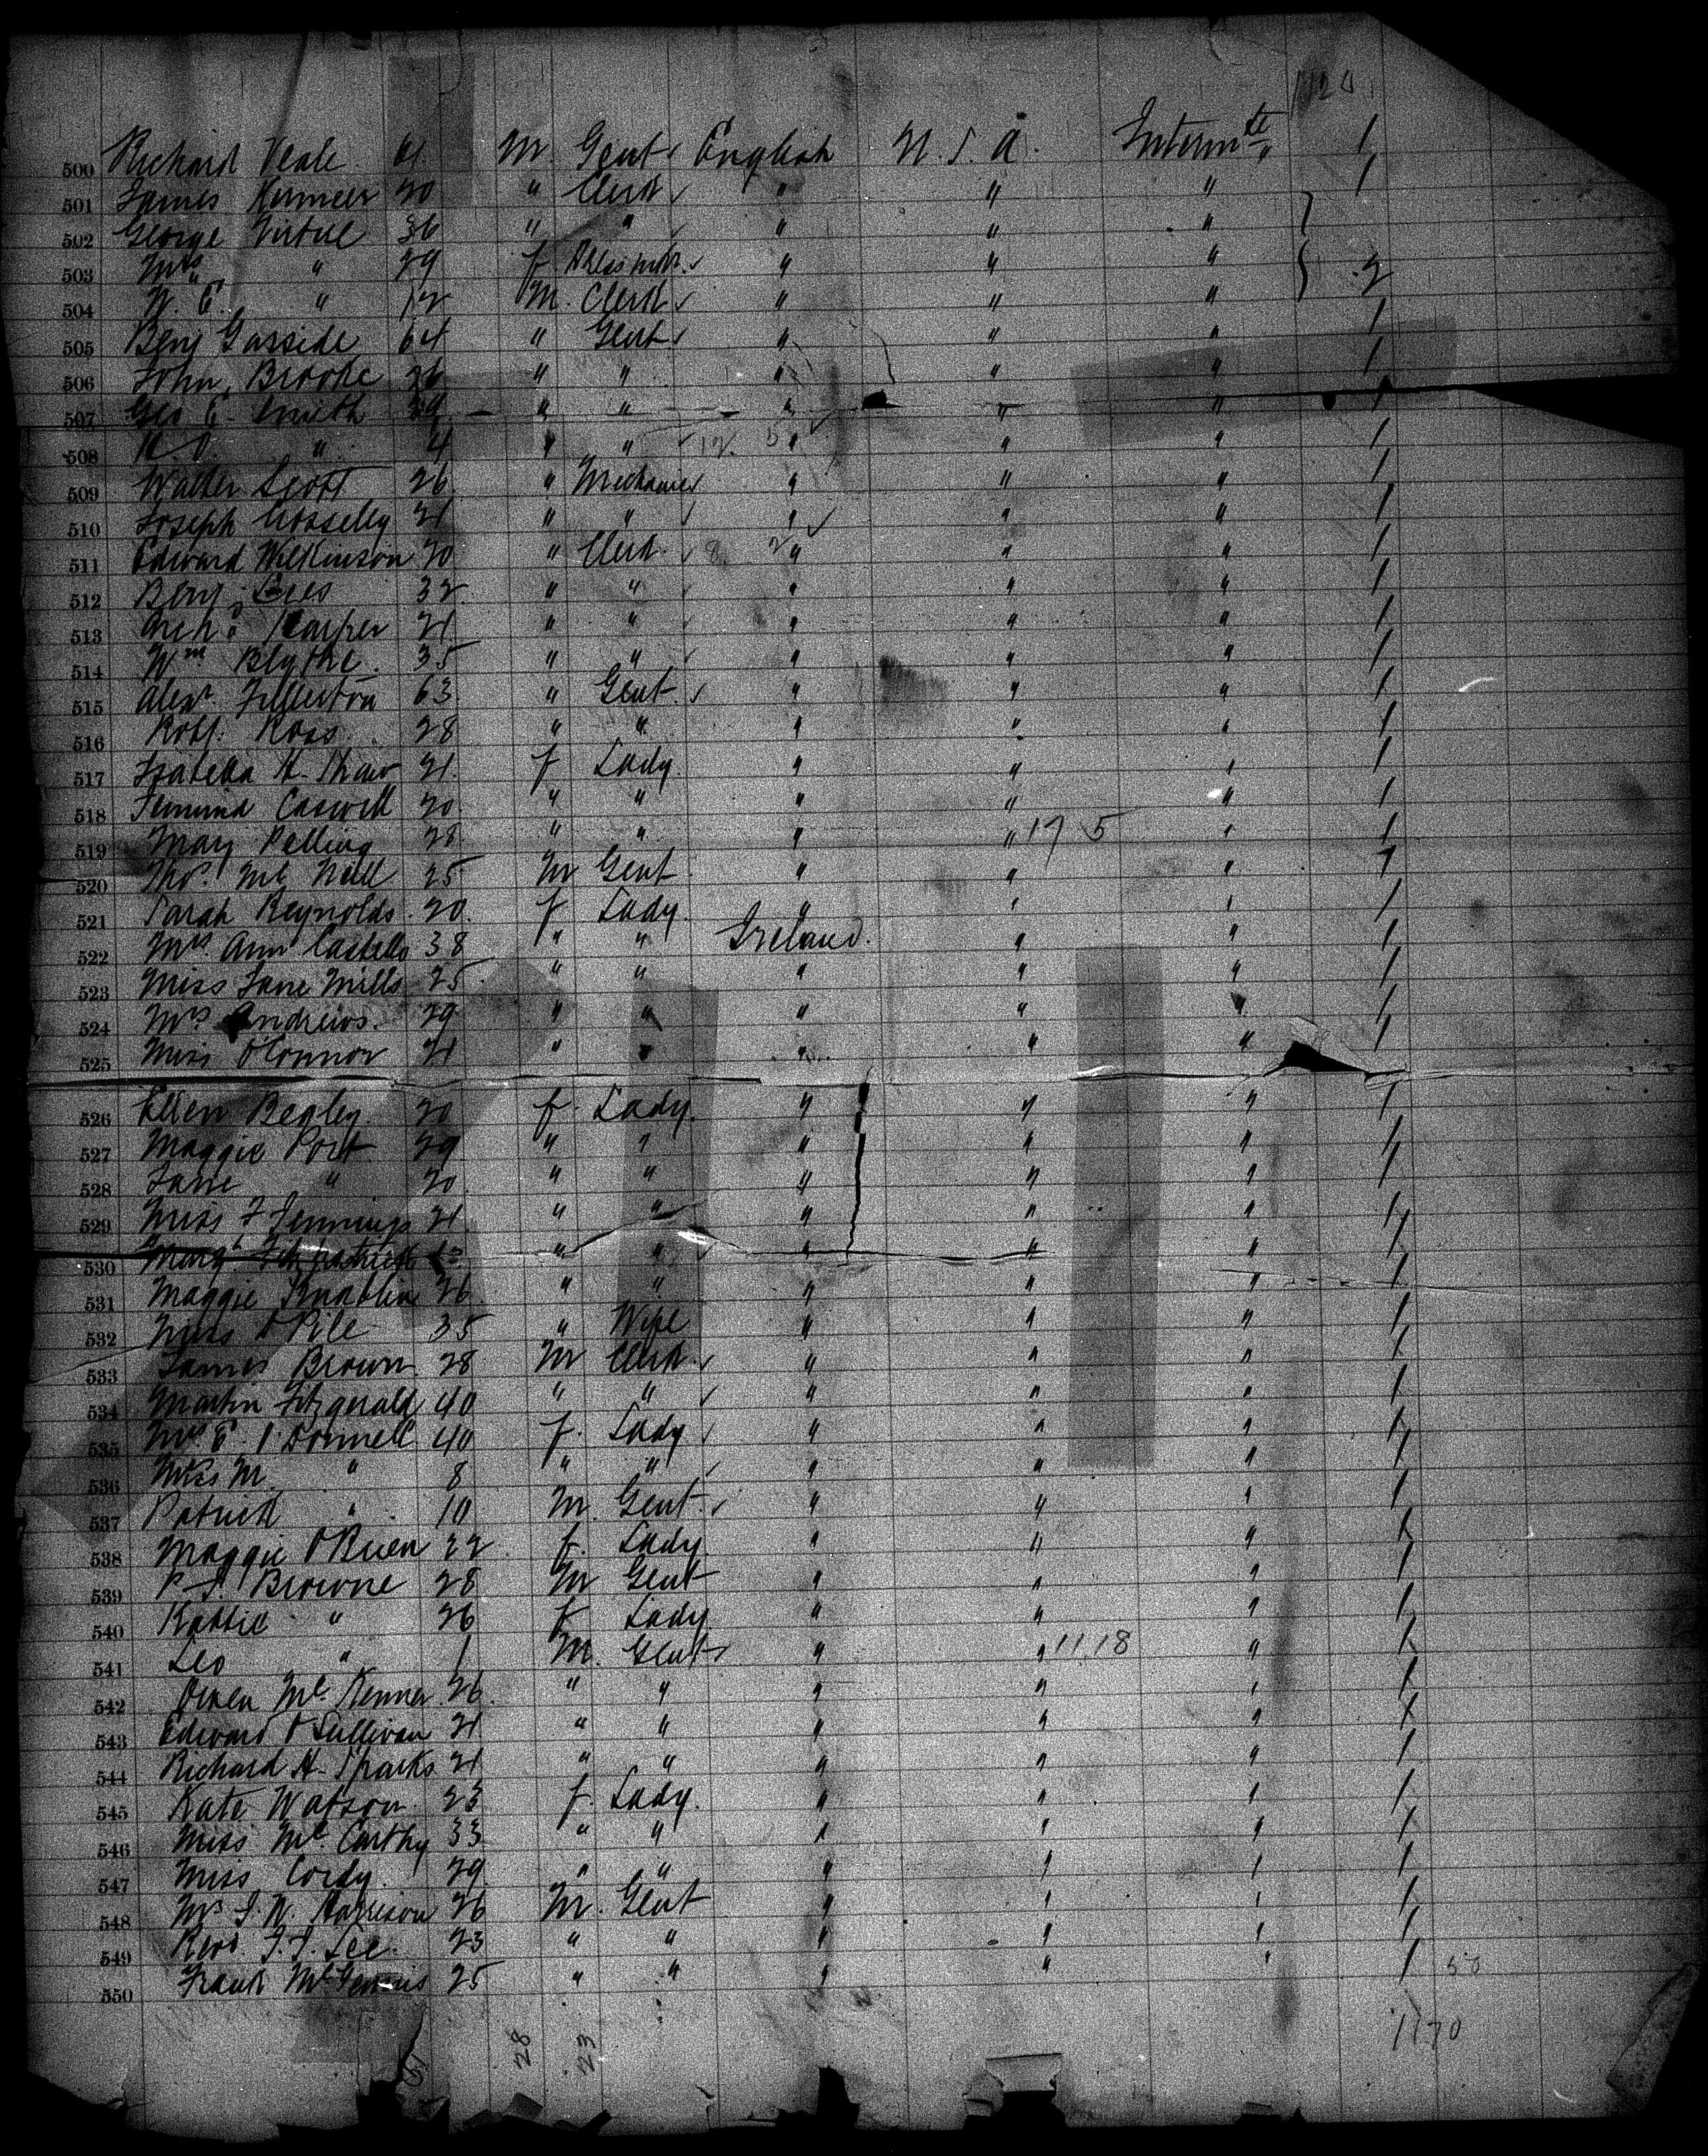 1120
500 Richard Veale 61 M. Gent English U.S.A. Intermte 1
501 James 20 " Clerk " " " 1
502 George Virtue 36 " " " " "
503 Mrs " 29 f " " " 2
504 W. E. " 12 M. Clerk " " "
505 Benj Garside 64 " Gent " " " 1
506 John Brooke 36 " " " " " 1
507 Geo E. Smith " " " " " 1
508 " 4 " " 12 5 " " " 1
509 Walter Scott 26 " Mechanic " " " 1
510 Joseph 21 " " " " " 1
511 Edward Wilkinson 20 " Clerk 8 2 " " " 1
512 Benj Lees 32 " " " " " 1
513 Archd Harper 21 " " " " " 1
514 Wm Blythe 35 " " " " " 1
515 Alexr 63 " Gent " " " 1
516 Robt. Ross 28 " " " " " 1
517 Isabella H. Shaw 21 f Lady " " " 1
518 Jemima Caswell 20 " " " " " 1
519 Mary Pelling 28 " " " " 17 5 " 1
520 Thos. Mc Neill 25 M Gent " " " 1
521 Sarah Reynolds 20 f Lady " " " 1
522 Mrs Ann Castello 38 " " Ireland " " 1
523 Miss Jane Mills 25 " " " " " 1
524 Mrs Andrews 29 " " " " " 1
525 Miss O'Connor 21 " " " " " 1
526 Ellen Begley 20 f Lady " " " 1
527 Maggie Port 29 " " " " " 1
528 Jane " 20 " " " " " 1
529 Miss F Jennings 21 " " " " " 1
530 Margt Fitzpatrick " " " " " 1
531 Maggie 26 " " " " " 1
532 35 " Wife " " " 1
533 James Brown 28 M Clerk " " " 1
534 Martin Fitzgerald 40 " " " " " 1
535 Mrs E. O'Donnell 40 f. Lady " " " 1
536 Miss M. " 8 " " " " " 1
537 Patrick " 10 M. Gent " " " 1
538 Maggie O'Brien 22 f. Lady " " " 1
539 Browne 28 M Gent " " " 1
540 " 26 f Lady " " " 1
541 Leo " 1 M. Gent " " 11 18 " 1
542 Owen Mc Kenna 26 " " " " " 1
543 Edward O'Sullivan 21 " " " " " 1
544 Richard H. Sparks 21 " " " " " 1
545 Kate Watson 23 f. Lady " " " 1
546 Miss Mc Carthy 33 " " " " " 1
547 Miss Cordy 29 " " " " " 1
548 Harrison 26 M. Gent " " " 1
549 Revd. Lee 23 " " " " " 1
550 Frank 25 " " " " " 1 50
28 23 1170